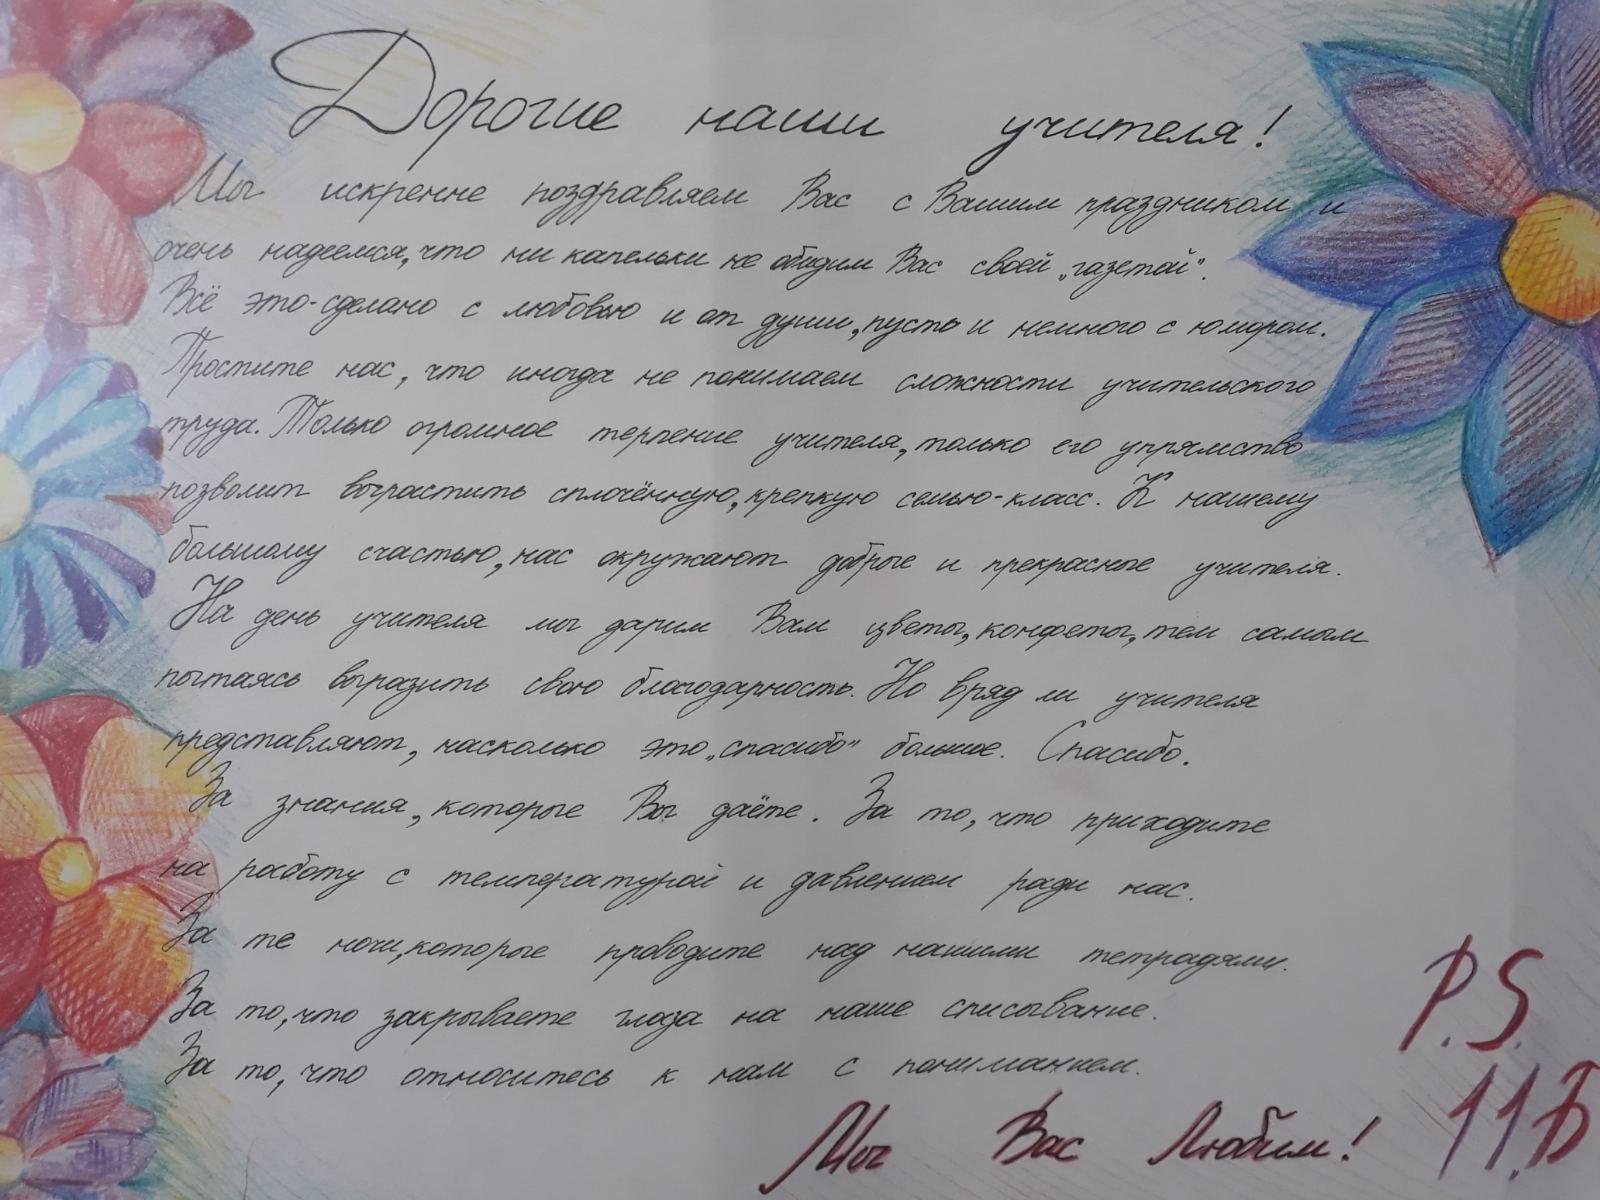 Дорогие наши учителя!
Мы искренне поздравляем Вас с Вашим праздником и
очень надеемся, что ни капельки не обидим Вас своей „газетой".
Всё это-сделано с любовью и от души, пусть и немного с юмором.
Простите нас, что иногда не понимаем сложности учительского
труда. Только огромное терпение учителя, только его упрямство
позволит вырастить сплочённую, крепкую семью-класс. К нашему
большому счастью, нас окружают добрые и прекрасные учителя.
На день учителя мы дарим Вам цветы, конфеты, тем самым
пытаясь выразить свою благодарность. Но вряд ли учителя
представляют, насколько это „спасибо" большое. Спасибо.
За знания, которые Вы даёте. За то, что приходите
на работу с температурой и давлением ради нас.
За те ночи, которые проводите над нашими тетрадями.
За то, что закрываете глаза на наше списывание.
За то, что относитесь к нам с пониманием.
Мы Вас Любим!
P.S.
11.Б